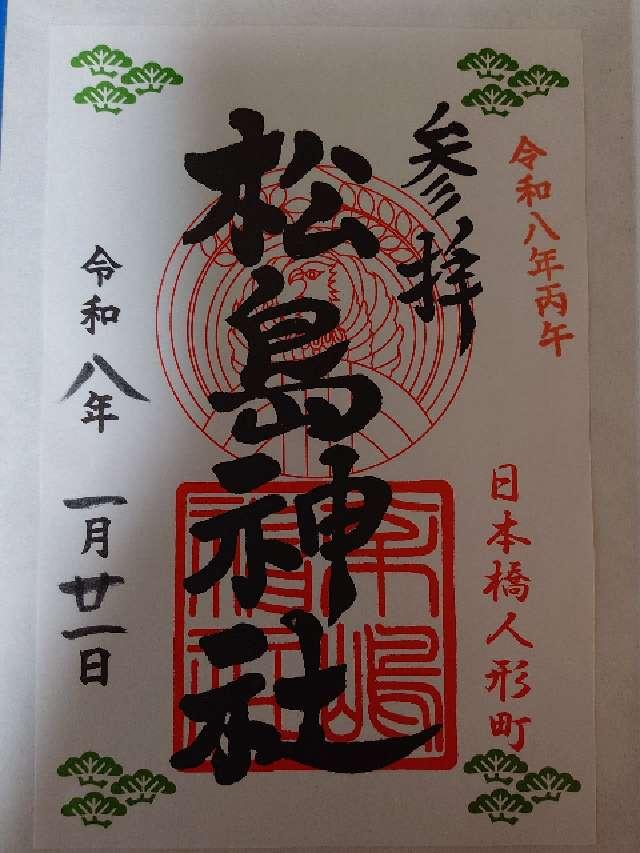 令和八年丙午
日本橋人形町
参拝
松島神社
令和八年 一月廿一日